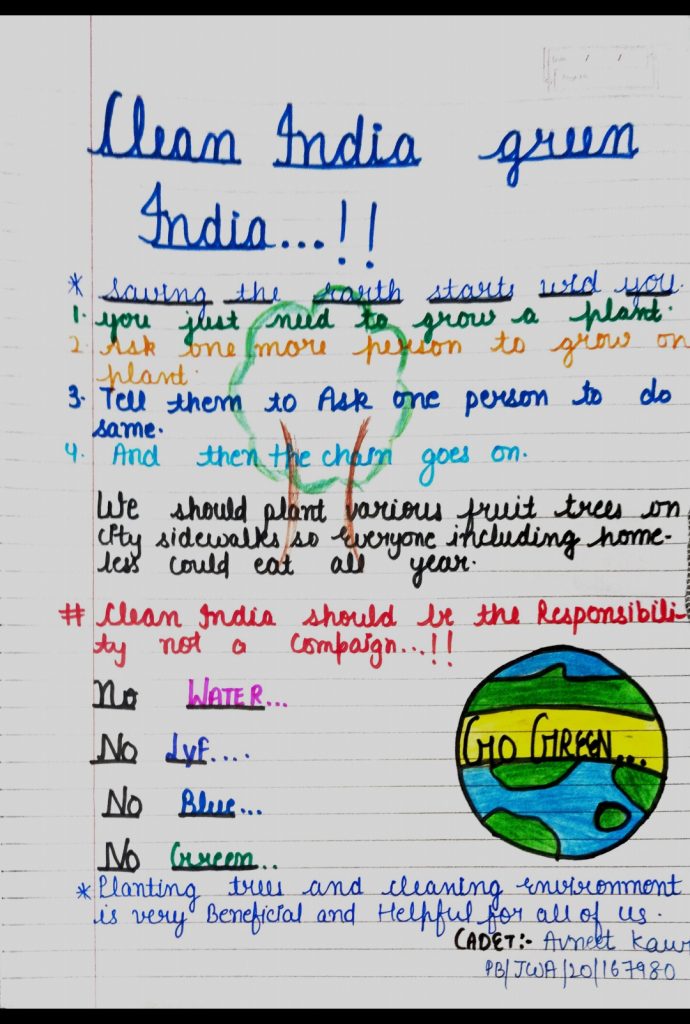 Clean India green
India...!!
* saving the earth starts wid you.
1. you just need to grow a plant.
2. Ask one more person to grow on
plant.
3. Tell them to Ask one person to do
same.
4. And then the chain goes on.
We should plant various fruit trees on
city sidewalks so everyone including home-
less could eat all year.
# Clean India should be the Responsibili-
ty not a Compaign...!!
No WATER...
No Lyf....
No Blue...
No Green..
GO GREEN...
* Planting trees and cleaning environment
is very Beneficial and Helpful for all of us.
CADET:- Avneet Kaur
PB/JWA/20/167980